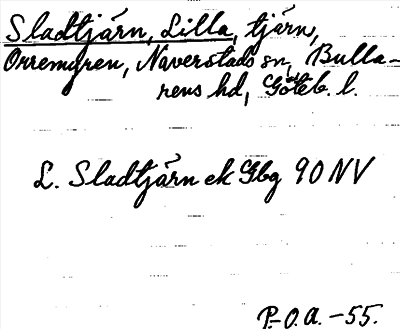 Sladtjärn, Lilla, tjärn,
Orremyren, Naverstads sn, Bulla-
rens hd, Göteb. l.
L. Sladtjärn ek Gbg 90 NV
P.-O.A. -55.